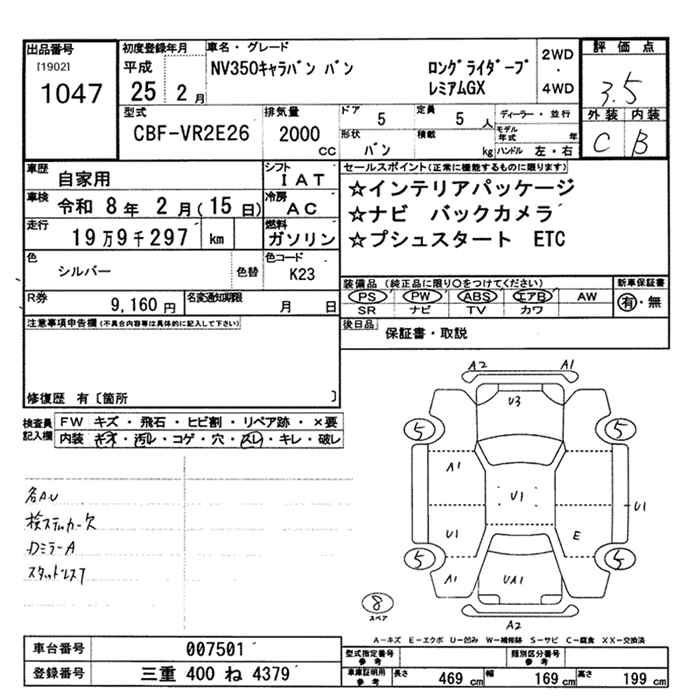 出品番号
[1902]
1047
初度登録年月
平成
25 2月
車名・グレード
NV350キャラバン バン ロングライダープ
レミアムGX
2WD
・
4WD
評価点
3.5
外装 内装
C B
型式
CBF-VR2E26
排気量
2000
CC
ドア 5
定員 5 人
形状 バン
積載 kg
ディーラー・並行
モデル年式 年
ハンドル 左・右
車歴 自家用
シフト IAT
車検 令和 8年 2月(15日)
冷房 AC
走行 19万9千297 km
燃料 ガソリン
色 シルバー
色替
色コード K23
R券 9,160円
名変通知期限 月 日
セールスポイント(正常に機能するものに限ります)
☆インテリアパッケージ
☆ナビ バックカメラ
☆プシュスタート ETC
装備品(純正品に限り○をつけてください)
PS PW ABS エアB AW
SR ナビ TV カワ
新車保証書
有・無
後日品 保証書・取説
注意事項申告欄(不具合内容等は具体的に記入して下さい)
修復歴 有〔箇所 〕
検査員記入欄
FW キズ・飛石・ヒビ割・リペア跡・×要
内装 キズ・汚レ・コゲ・穴・スレ・キレ・破レ
各AU
検ステッカー欠
DミラーA
スタッドレス7
A2 A1
U3
5 5
A1
U1 U1
U1 E
5 5
A1 UA1
8
スペア
A2
A-キズ E-エクボ U-凹み W-補修跡 S-サビ C-腐食 XX-交換済
車台番号 007501
登録番号 三重 400 ね 4379
型式指定番号 参考
類別区分番号 参考
車庫証明用 参考
長さ 469 cm
幅 169 cm
高さ 199 cm